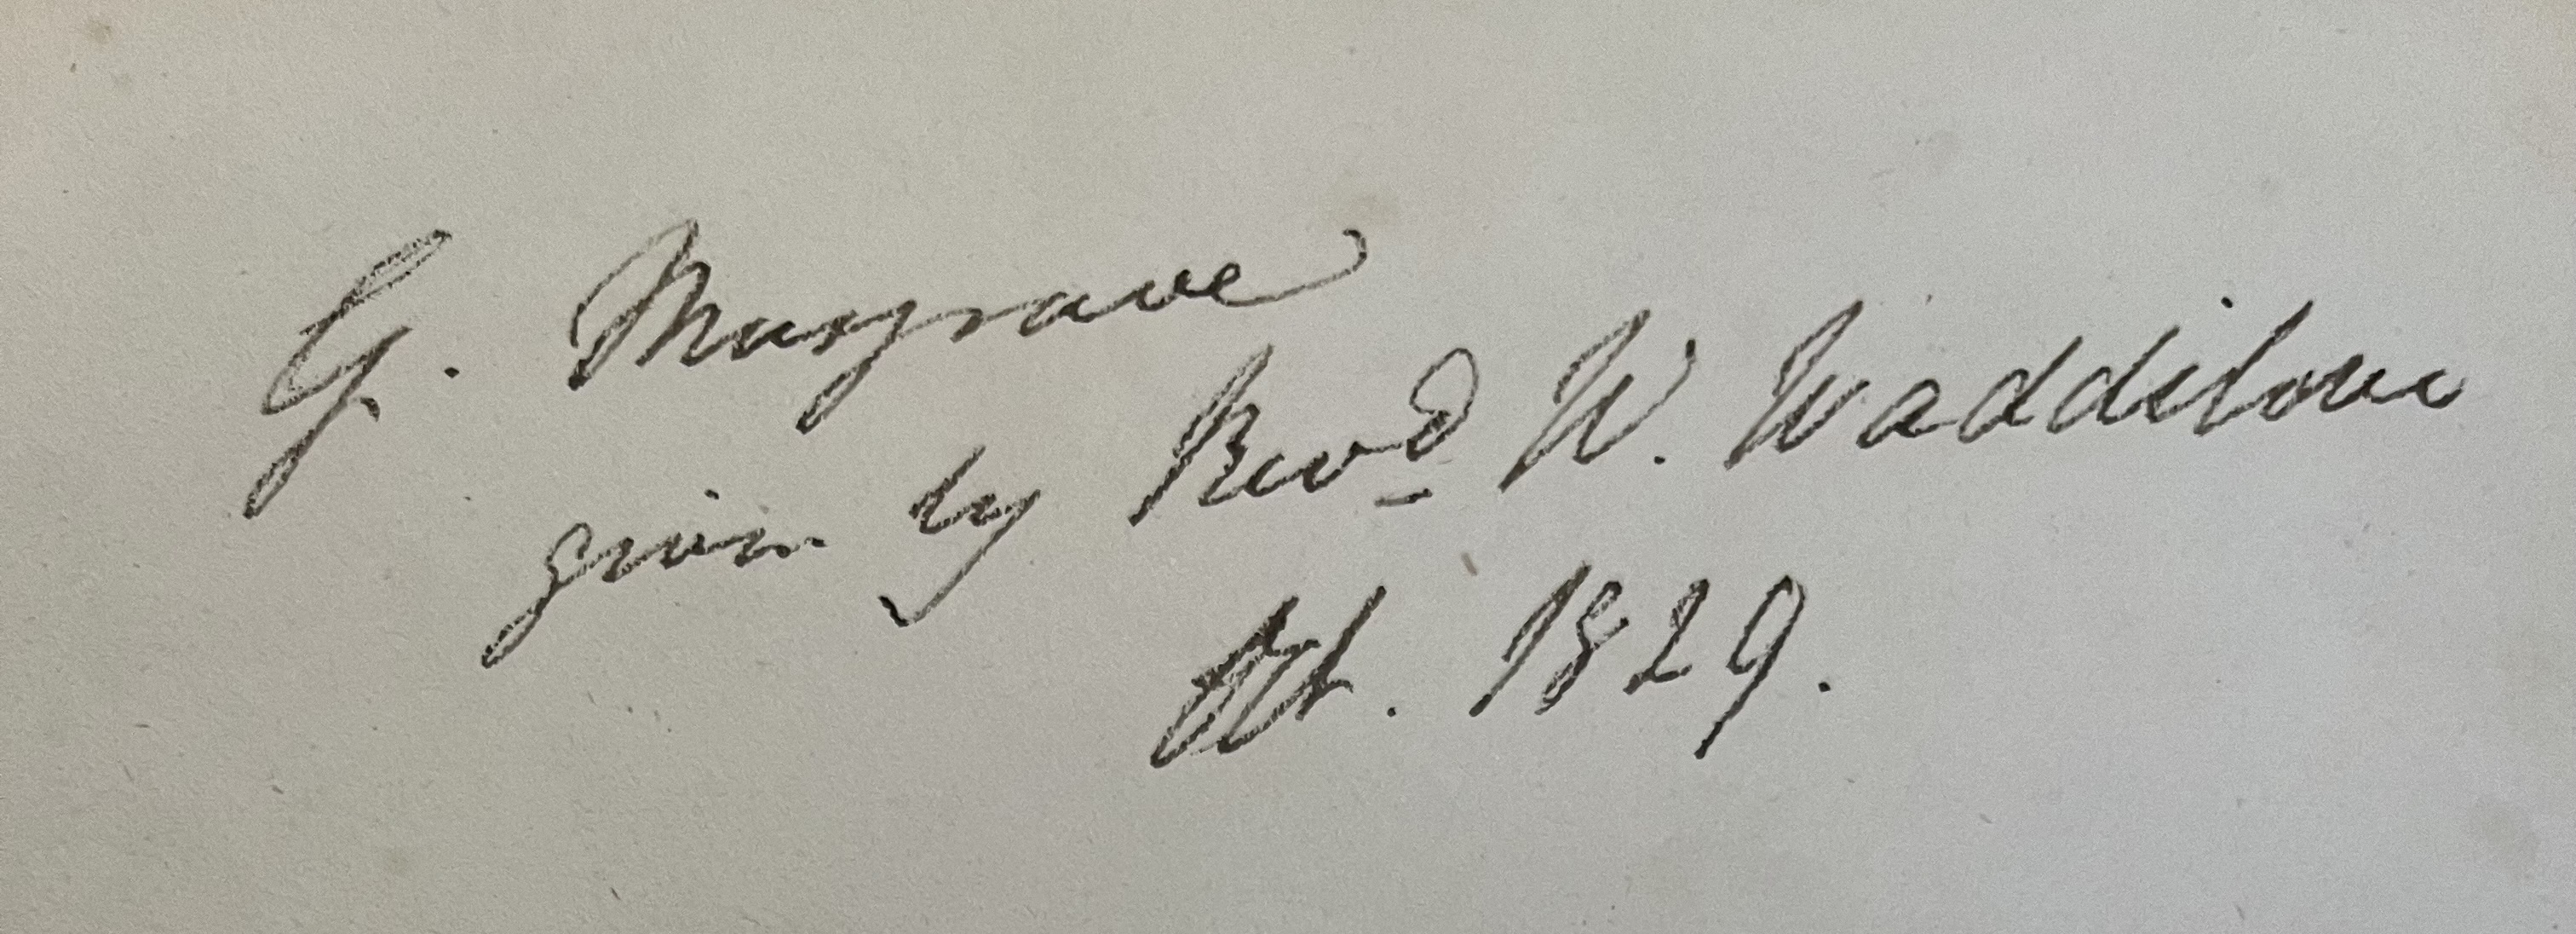 G. Musgrave
given by Revd W. Waddilove
Oct. 1829.